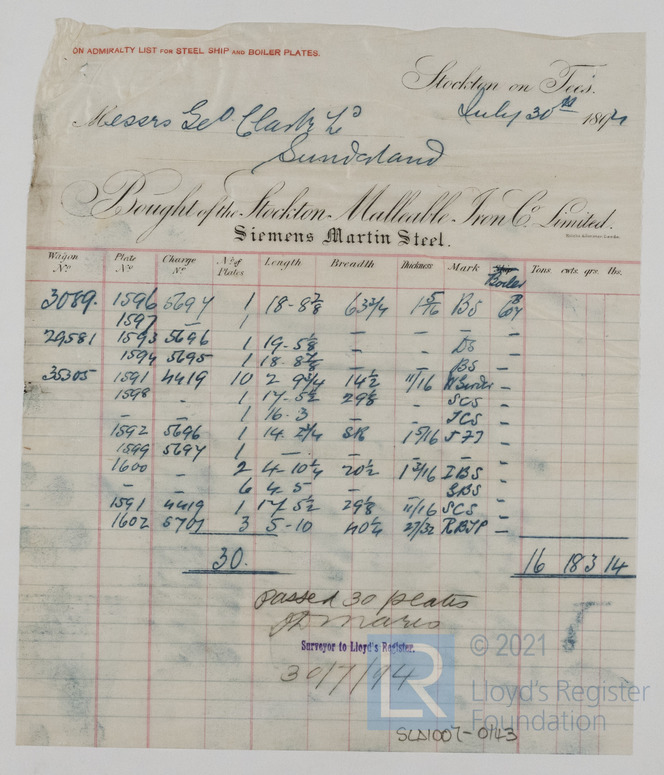 ON ADMIRALTY LIST FOR STEEL SHIP AND BOILER PLATES.
Stockton on Tees.
July 30th 1894
Messrs Geo Clark Ld
Sunderland
Bought of the Stockton Malleable Iron Co. Limited.
Siemens Martin Steel.
Wagon No. Plate No. Charge No. No. of Plates Length Breadth Thickness Mark Boiler Tons cwts. qrs. lbs.
3089. 1596 5697 1 18-8 7/8 63 3/4 1 5/16 BS
1597 - 1
29581 1593 5696 1 19-5 1/8 - - DS -
1594 5695 1 18-8 7/8 - - BS -
35305 1591 4419 10 2 9 3/4 14 1/2 11/16 -
1598 - 1 17-5 1/2 29 1/8 - SCS -
- - 1 16-3 - TCS -
1592 5696 1 14 1 5/16 -
1599 5697 1 - - -
1600 - 2 4-10 1/4 20 1/2 1 3/16 IBS -
- - 6 4-5 - - SBS -
1591 4419 1 17-5 1/2 29 1/8 11/16 SCS -
1602 5701 3 5-10 40 1/4 27/32 RBTP -
30. 16 18 3 14
Passed 30 plates
Surveyor to Lloyd's Register.
30/7/94
© 2021
LR
Lloyd's Register
Foundation
SLD1007-0143